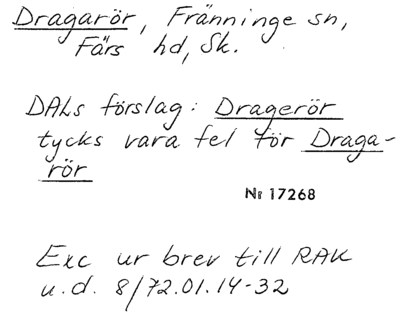 Dragarör, Fränninge sn,
Färs hd, Sk.
DALs förslag: Dragerör
tycks vara fel för Draga-
rör
Nr 17268
Exc ur brev till RAK
u.d. 8/72.01.14-32